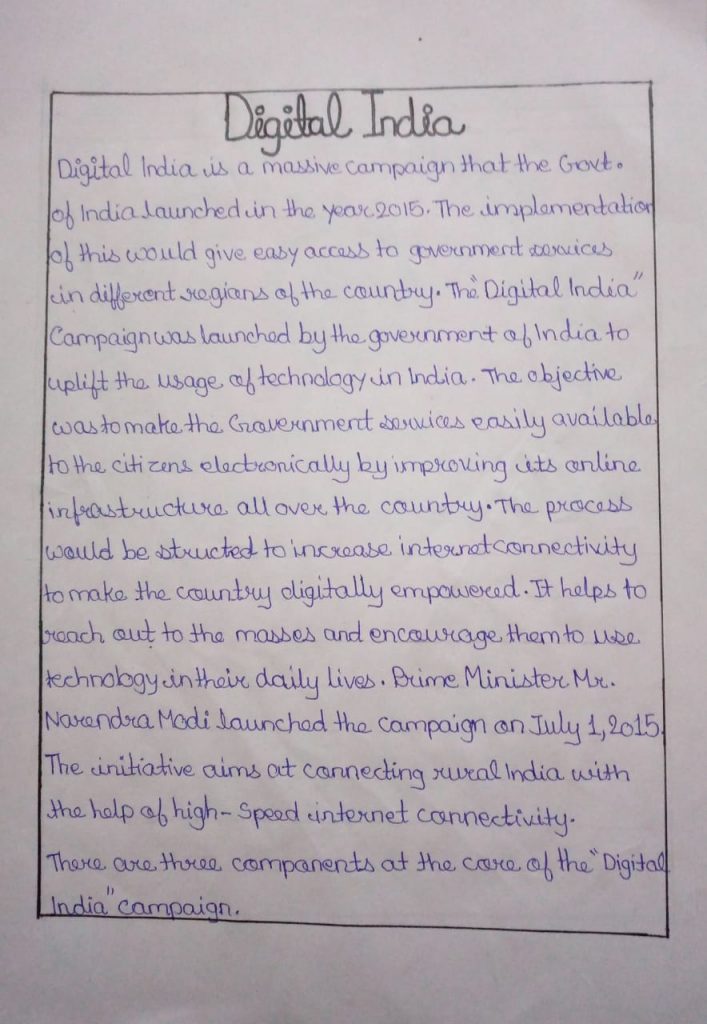 Digital India
Digital India is a massive campaign that the Govt.
of India launched in the year 2015. The implementation
of this would give easy access to government services
in different regions of the country. The "Digital India"
Campaign was launched by the government of India to
uplift the usage of technology in India. The objective
was to make the Government services easily available
to the citizens electronically by improving its online
infrastructure all over the country. The process
would be structed to increase internet connectivity
to make the country digitally empowered. It helps to
reach out to the masses and encourage them to use
technology in their daily lives. Prime Minister Mr.
Narendra Modi launched the campaign on July 1, 2015.
The initiative aims at connecting rural India with
the help of high-Speed internet connectivity.
There are three components at the core of the "Digital
India" campaign.